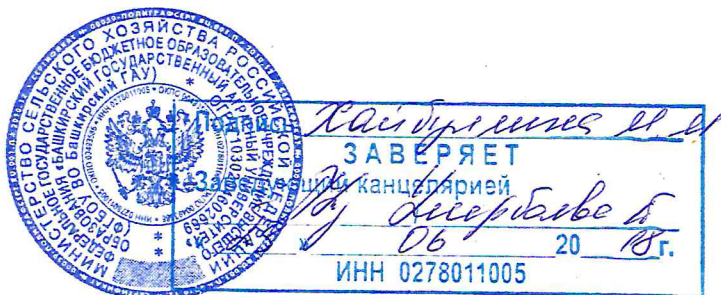 МИНИСТЕРСТВО СЕЛЬСКОГО ХОЗЯЙСТВА РОССИЙСКОЙ ФЕДЕРАЦИИ
ФЕДЕРАЛЬНОЕ ГОСУДАРСТВЕННОЕ БЮДЖЕТНОЕ ОБРАЗОВАТЕЛЬНОЕ УЧРЕЖДЕНИЕ ВЫСШЕГО
ОБРАЗОВАНИЯ «БАШКИРСКИЙ ГОСУДАРСТВЕННЫЙ АГРАРНЫЙ УНИВЕРСИТЕТ»
(ФГБОУ ВО Башкирский ГАУ)
Подпись Хайбуллина И И
ЗАВЕРЯЕТ
Заведующий канцелярией
» 06 20 18г.
ИНН 0278011005